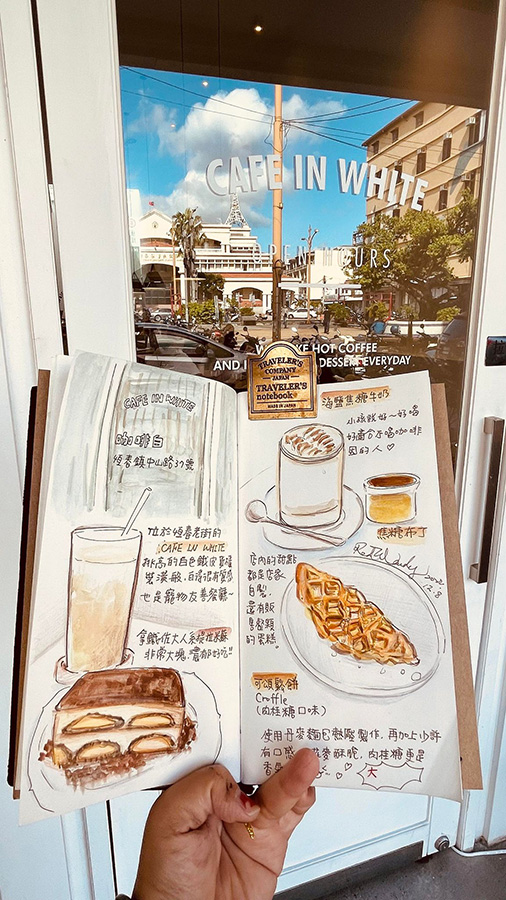 CAFE IN WHITE
OPEN HOURS
KE HOT COFFEE
AND DESSERT EVERYDAY
TRAVELER'S
COMPANY
JAPAN
TRAVELER'S
notebook
MADE IN JAPAN
CAFE IN WHITE
咖啡白
恆春鎮中山路37號
位於恆春老街的
CAFE IN WHITE
挑高的白色鐵皮屋
也是寵物友善餐廳~
拿鐵佐大人系提拉米蘇
非常大塊,
海鹽焦糖牛奶
小孩飲好~好喝
好適合不喝咖啡
因的人♡
焦糖布丁
店內的甜點
都是店家
自製,
還有販
售餐類
的蛋糕
可頌鬆餅
Croffle
(肉桂糖口味)
使用丹麥麵包熱壓製作,再加上小許
酥脆,肉桂糖更是
大